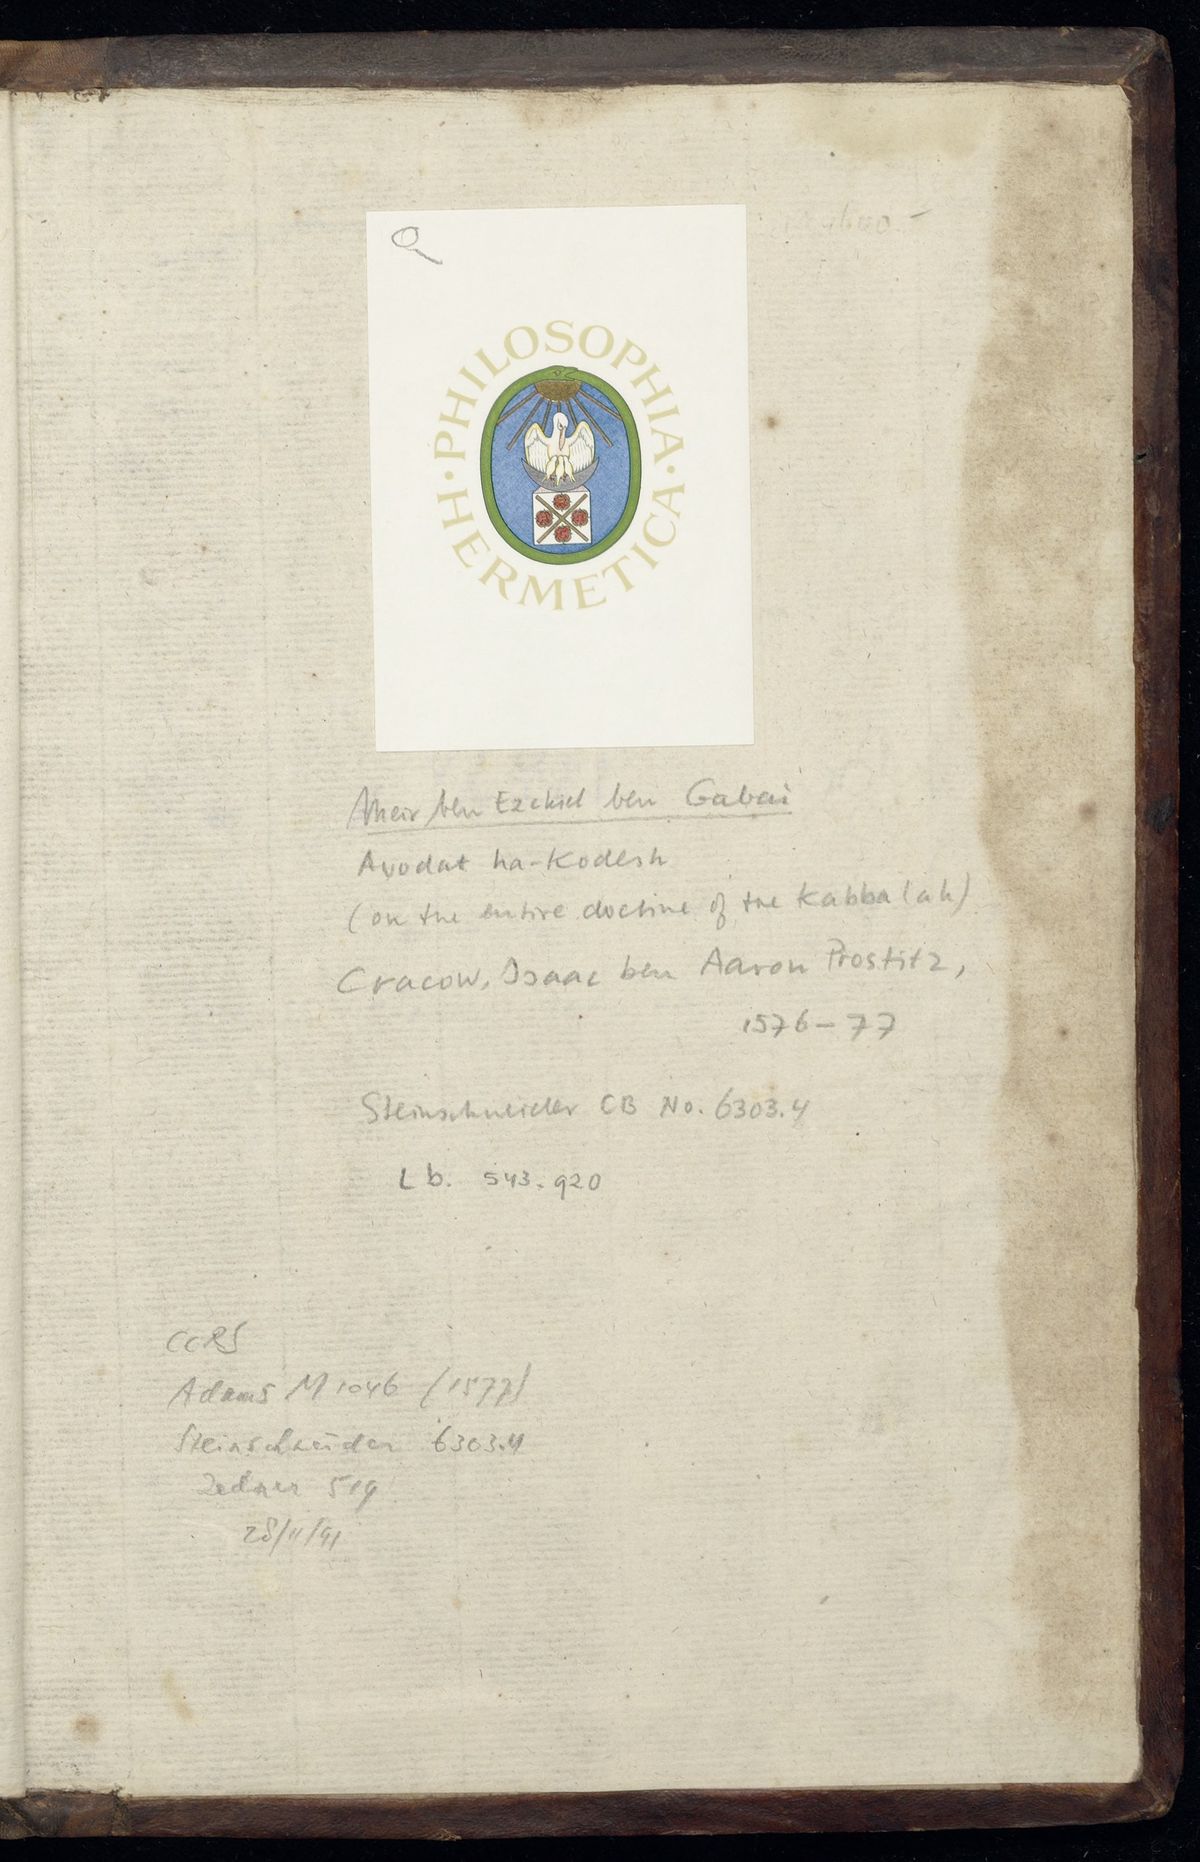 PHILOSOPHIA · HERMETICA ·
Meir ben Ezekiel ben Gabai
Avodat ha-Kodesh
(on the entire doctrine of the Kabbalah)
Cracow, Isaac ben Aaron Prostitz,
1576-77
Steinschneider CB No. 6303.4
Lb. 543.920
CCRS
Adams M 1046 (1577)
Steinschneider 6303.4
Zedner 519
28/11/91